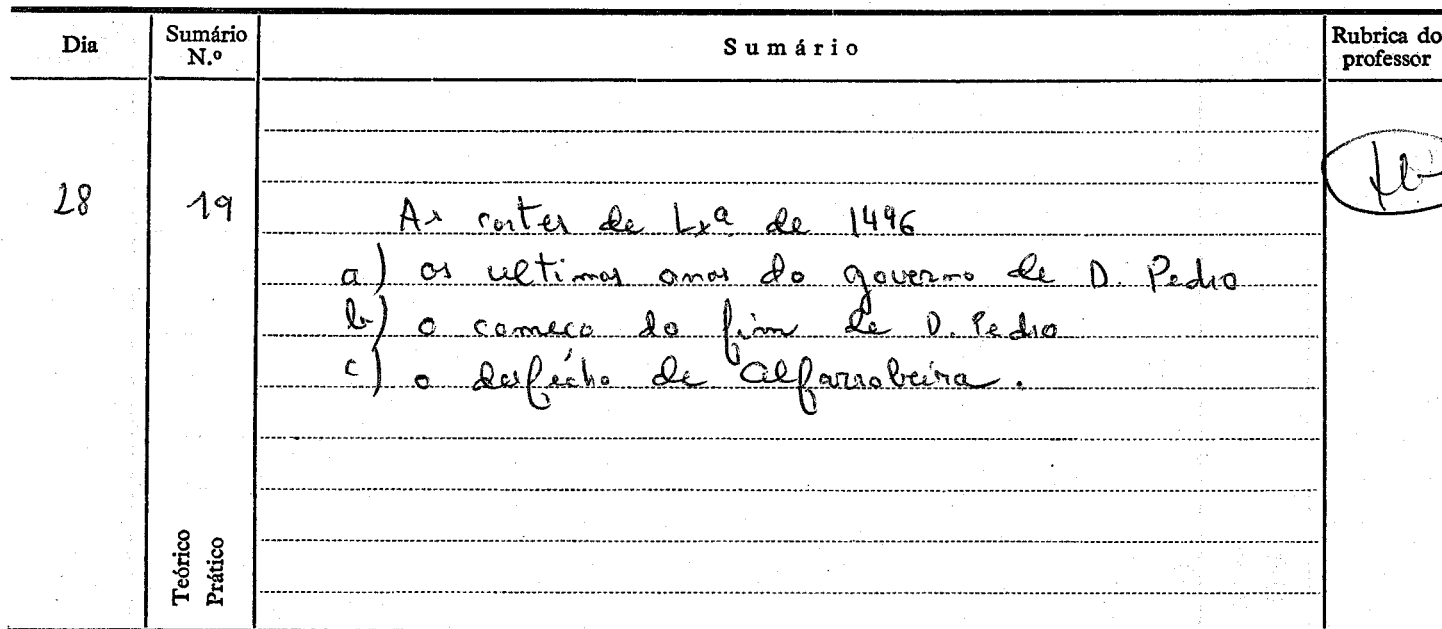 Dia
Sumário N.º
Sumário
Rubrica do professor
28
19
As cortes de Lxª de 1496
a) os ultimos anos do governo de D. Pedro
b) o começo do fim de D. Pedro
c) o desfécho de Alfarrobeira.
Teórico
Prático